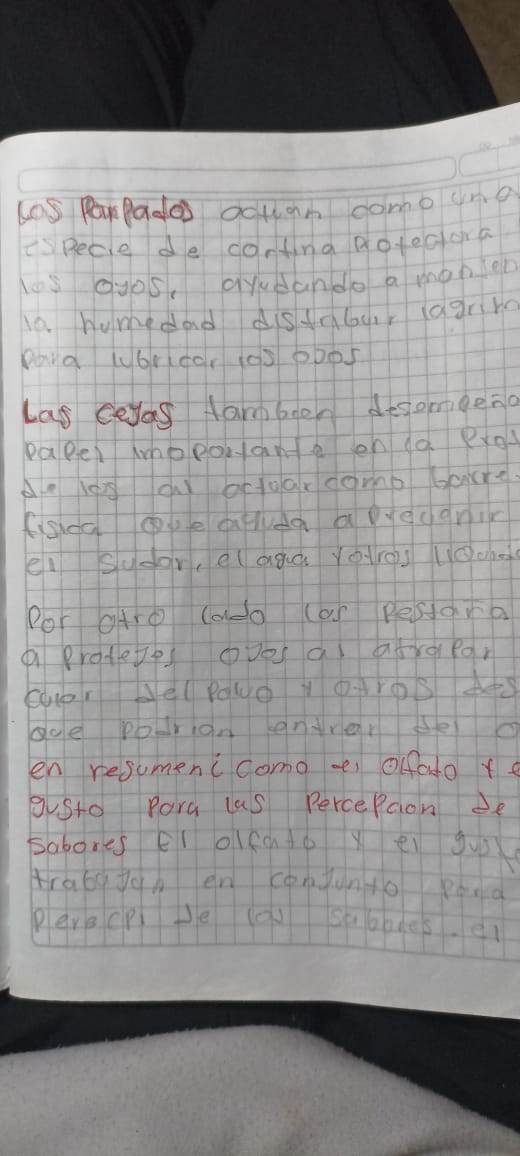 Los Parpados actuan como una
especie de cortina protectora
los ojos, ayudando a manten
la humedad distribuir lagrima
para lubricar los ojos
Las cejas tambien desempeña
papel importante en la
de los al actuar como barre
fisica que ayuda a prevenir
el sudor, el agua y otros
Por otro lado las pestaña
a proteger ojos al atrapar
del polvo y otros des
que podrian entrar del o
en resumen como el olfato y e
gusto para las Percepcion de
sabores El olfato y el gusto
trabajan en conjunto para
de los sabores. el